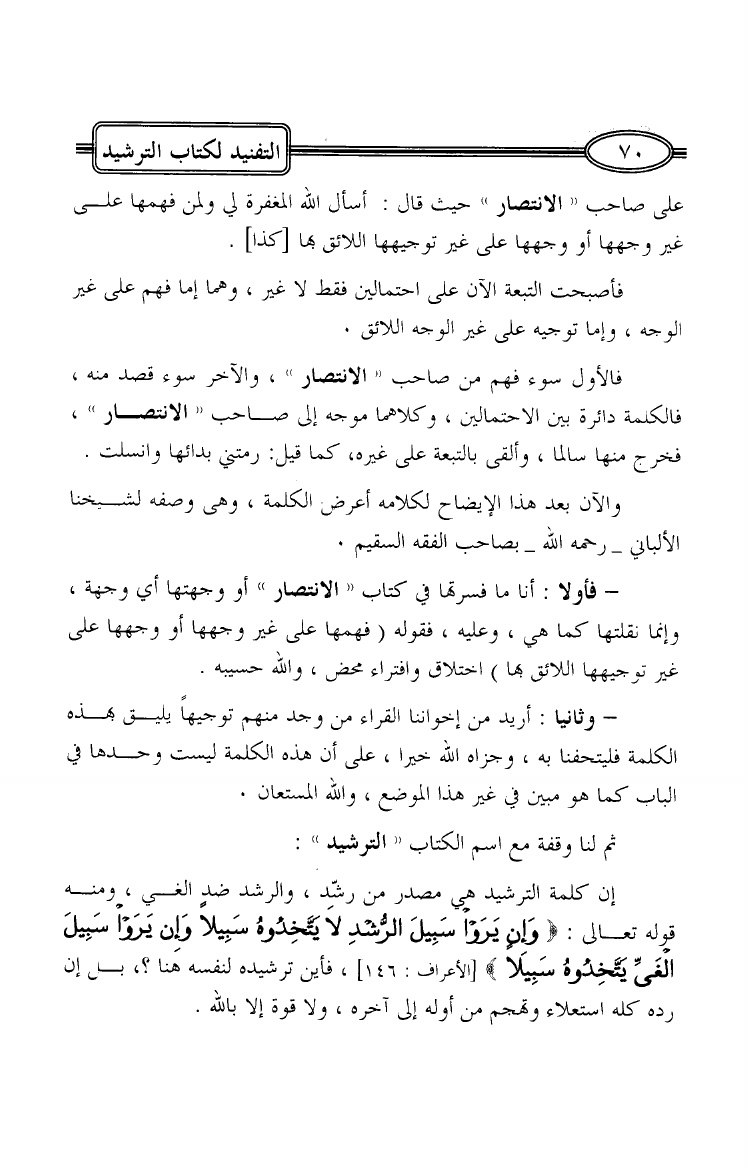 ٧٠ التفنيد لكتاب الترشيد
على صاحب « الانتصار » حيث قال : أسأل الله المغفرة لي ولمن فهمها علـــى
غير وجهها أو وجهها على غير توجيهها اللائق بها [كذا] .
فأصبحت التبعة الآن على احتمالين فقط لا غير ، وهما إما فهم على غير
الوجه ، وإما توجيه على غير الوجه اللائق .
فالأول سوء فهم من صاحب « الانتصار » ، والآخر سوء قصد منه ،
فالكلمة دائرة بين الاحتمالين ، وكلاهما موجه إلى صـــاحب « الانتصـــار » ،
فخرج منها سالما ، وألقى بالتبعة على غيره، كما قيل: رمتني بدائها وانسلت .
والآن بعد هذا الإيضاح لكلامه أعرض الكلمة ، وهى وصفه لشـــيخنا
الألباني _ رحمه الله _ بصاحب الفقه السقيم .
– فأولا : أنا ما فسرتها في كتاب « الانتصار » أو وجهتها أي وجهة ،
وإنما نقلتها كما هي ، وعليه ، فقوله ( فهمها على غير وجهها أو وجهها على
غير توجيهها اللائق بها ) اختلاق وافتراء محض ، والله حسيبه .
– وثانيا : أريد من إخواننا القراء من وجد منهم توجيهاً يليـــق بهـــذه
الكلمة فليتحفنا به ، وجزاه الله خيرا ، على أن هذه الكلمة ليست وحـــدها في
الباب كما هو مبين في غير هذا الموضع ، والله المستعان .
ثم لنا وقفة مع اسم الكتاب « الترشيد » :
إن كلمة الترشيد هي مصدر من رشّد ، والرشد ضد الغـــي ، ومنـــه
قوله تعـــالى : ﴿ وَإِن يَرَوْا سَبِيلَ الرُّشْدِ لَا يَتَّخِذُوهُ سَبِيلاً وَإِن يَرَوْا سَبِيلَ
الْغَيِّ يَتَّخِذُوهُ سَبِيلاً ﴾ [الأعراف : ١٤٦] ، فأين ترشيده لنفسه هنا ؟، بـــل إن
رده كله استعلاء وتهجم من أوله إلى آخره ، ولا قوة إلا بالله .